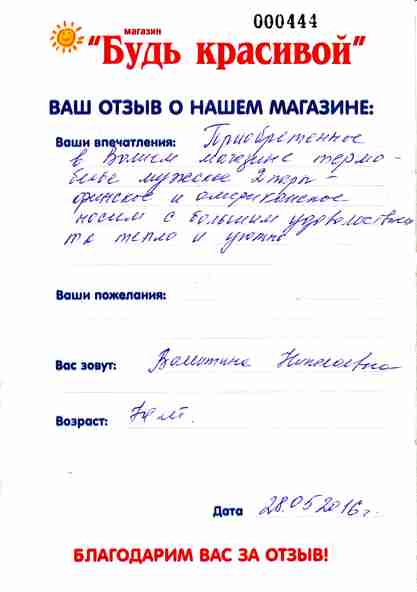 000444
магазин
"Будь красивой"
ВАШ ОТЗЫВ О НАШЕМ МАГАЗИНЕ:
Ваши впечатления: Приобретенное
в Вашем магазине термо-
белье мужское 2 пары -
финское и американское
носим с большим удовольствием
тепло и уютно
Ваши пожелания:
Вас зовут: Валентина Николаевна
Возраст:
Дата 28.05 2016г.
БЛАГОДАРИМ ВАС ЗА ОТЗЫВ!